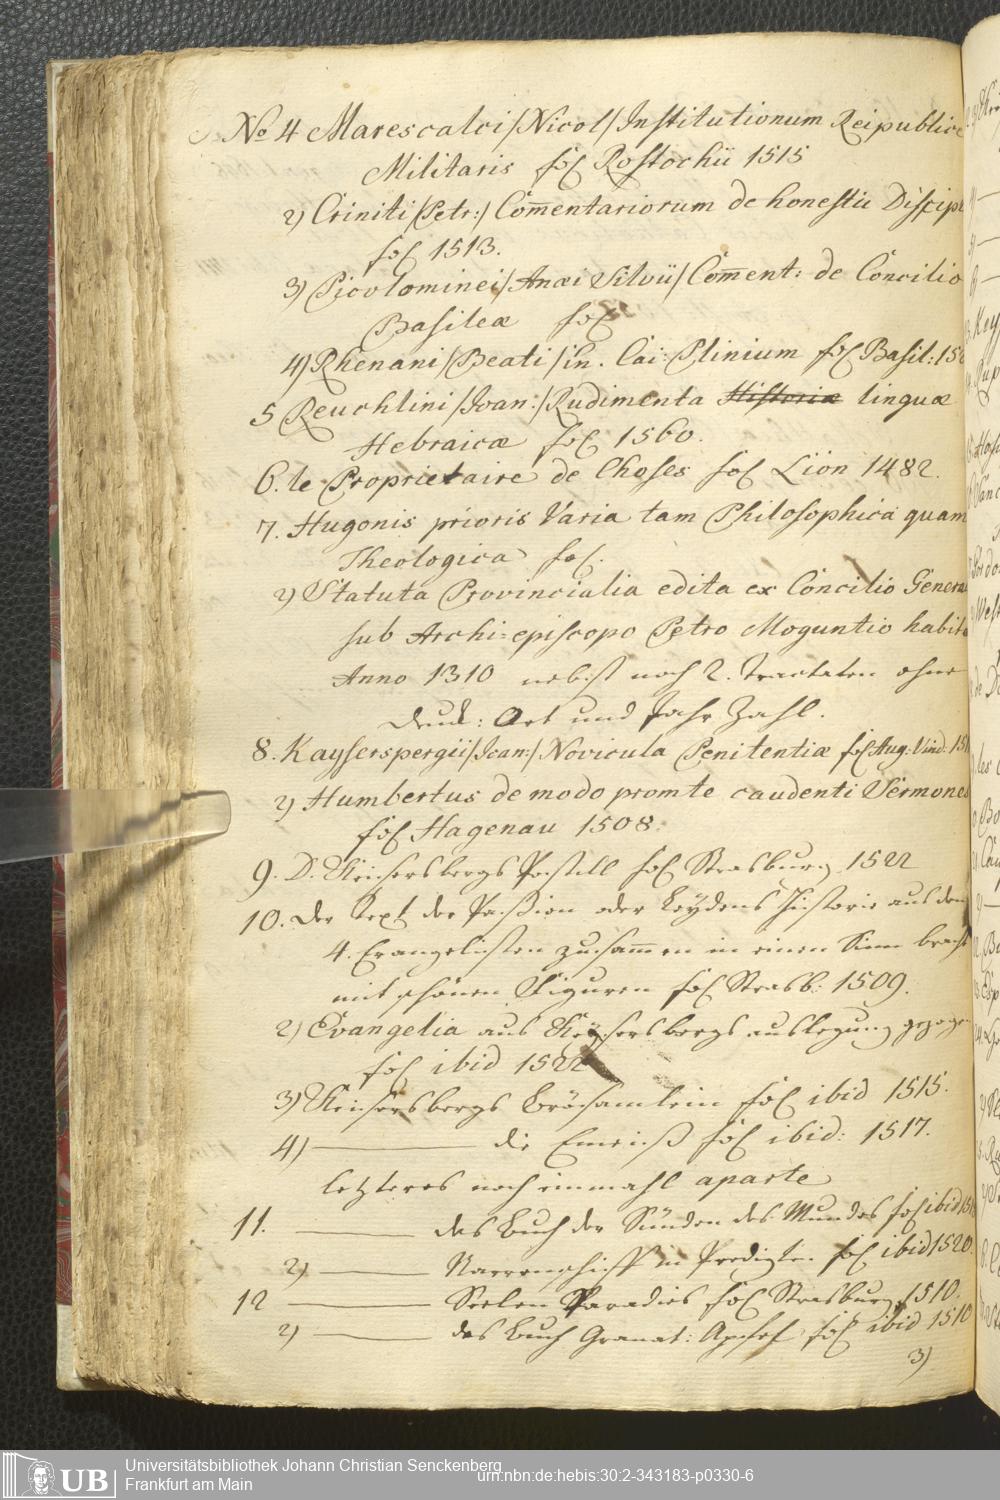 No 4 Marescalci /Nicol/ Institutionum Reipublice
Militaris fol Rostochii 1515
2) Criniti /Petr:/ Com̄entariorum de honestii Discipl
fol 1513.
3) Picolominei /Anæi Silvii/ Com̄ent: de Concilio
Basileæ fol
4) Rhenani /Beati/ in. Cai: Plinium fol Basil: 152
5 Reuchlini /Ioan:/ Rudimenta Historiæ linguæ
Hebraicæ fol 1560.
6. le Proprietaire de Choses fol Lion 1482.
7. Hugonis prioris Varia tam Philosophica quam
Theologica fol.
2) Statuta Provincialia edita ex Concilio Genera
sub Archi-episcopo Petro Moguntio habito
Anno 1310 nebst noch 2. Tractaten ohne
Druck: Ort und Jahr Zahl.
8. Kayserspergii /Ioan:/ Novicula Penitentiæ fol Aug. Vind: 151
2) Humbertus de modo promte caudenti Sermones
fol Hagenau 1508.
9. D. Keisersbergs Postill fol Strasburg 1522
10. Der Text der Passion oder Leydens Historie aus den
4. Evangelisten zusam̄en in einen Sinn bracht
mit schönen Figuren fol Strasb: 1509.
2) Evangelia aus Keysersbergs auslegung gezogen
fol ibid 1522
3) Keisersbergs Brösamlein fol ibid 1515.
4) ——— die Emeiß fol ibid: 1517.
letzteres noch einmahl aparte
11. ——— das Buch der Sünden des Mundes fol ibid 151
2) ——— Narrenschiff in Predigten fol ibid 1520.
12 ——— Seelen Paradies fol Strasburg 1510.
2) ——— das Buch Granat: Apfel fol ibid 1510
3)
UB Universitätsbibliothek Johann Christian Senckenberg
Frankfurt am Main
urn:nbn:de:hebis:30:2-343183-p0330-6